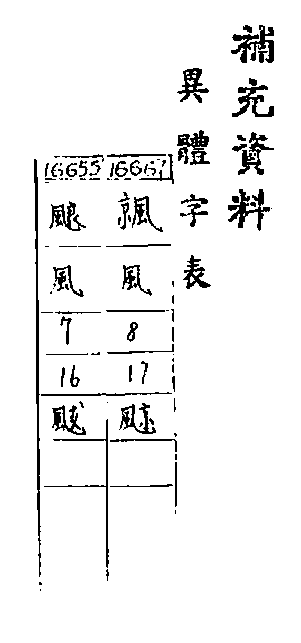 補充資料
異體字表
16667
風
8
17
16655
風
7
16